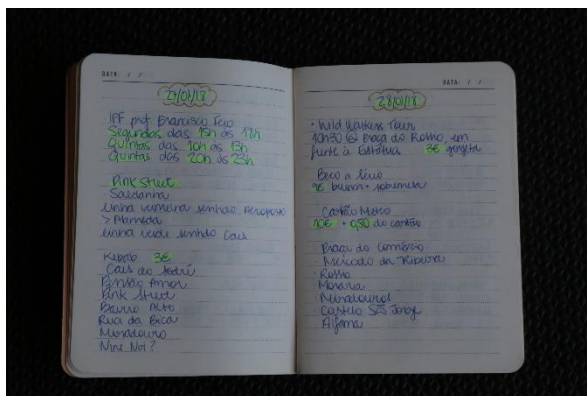 DATA: / /
27/01/18
IPF prof. Francisco Feio
Segundas das 15h às 17h
Quintas das 10h às 13h
Quintas das 20h às 23h
Pink Street
Saldanha
Linha vermelha sentido Aeroporto
> Alameda
Linha verde sentido Cais
Kebab 3€
Cais do Sodré
Pensão Amor
Pink Street
Bairro Alto
Rua da Bica
Miradouro
DATA: / /
28/01/18
• Wild Walkers Tour
10h30 @ Praça do Rossio, em
frente à Estátua 3€ gorjeta
Beco a
+ sobremesa
Cartão Metro
10€ + 0,50 do cartão
Praça do Comércio
Mercado da Ribeira
Rossio
Moraria
Miradouros
Castelo São Jorge
Alfama